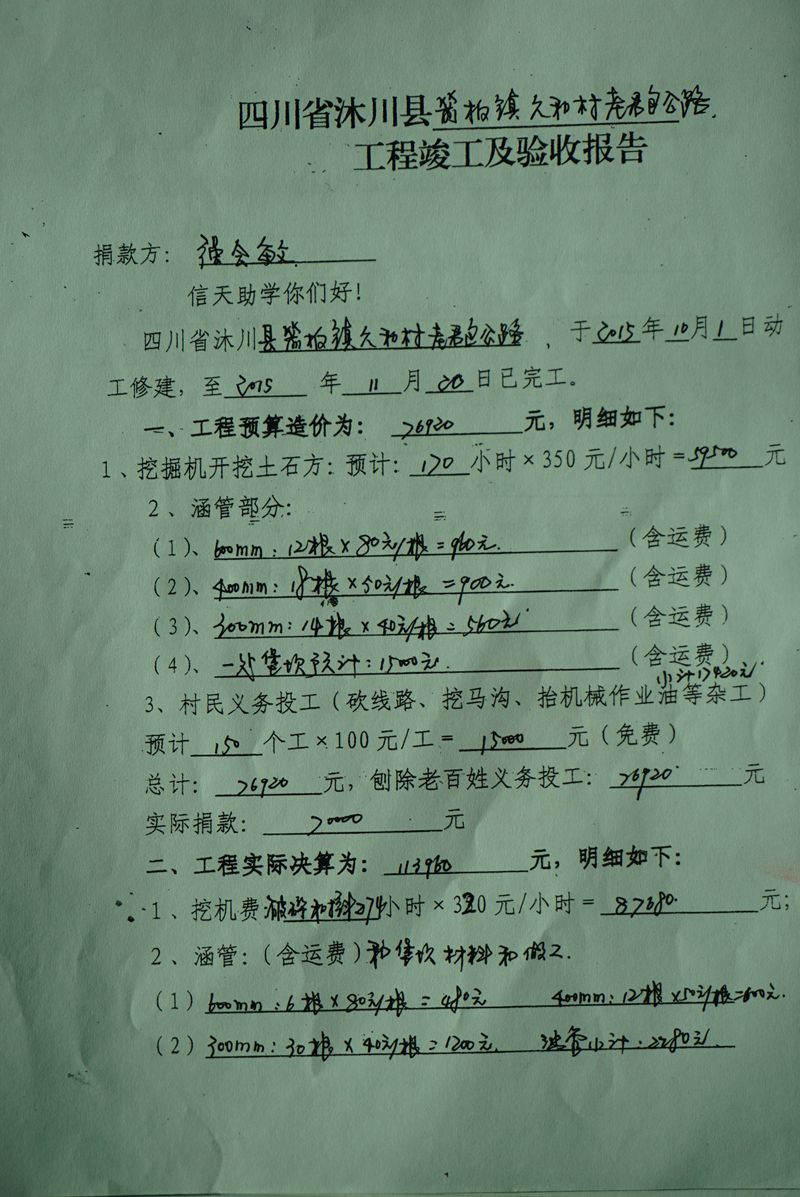 四川省沐川县箭柏镇久和村老君自公路
工程竣工及验收报告
捐款方：强会敏
信天助学你们好！
四川省沐川县箭柏镇久和村老君自公路，于2015年10月1日动
工修建，至2015年11月20日已完工。
一、工程预算造价为：76920元，明细如下：
1、挖掘机开挖土石方：预计：170小时×350元/小时=59500元
2、涵管部分：
（1）、600mm：12根×80元/根=960元（含运费）
（2）、400mm：18根×50元/根=900元.（含运费）
（3）、300mm：14根×40元/根=560元（含运费）
（4）、一处堡坎预计：15000元（含运费）
小计17420元.
3、村民义务投工（砍线路、挖马沟、抬机械作业油等杂工）
预计150个工×100元/工=15000元（免费）
总计：76920元，刨除老百姓义务投工：76920元
实际捐款：70000元
二、工程实际决算为：113960元，明细如下：
1、挖机费破碎和挖274小时×320元/小时=87680元；
2、涵管：（含运费）和堡坎材料和做工.
（1）600mm：6根×80元/根=480元 400mm：12根×50元/根=600元.
（2）300mm：30根×40元/根=1200元. 涵管小计：2280元